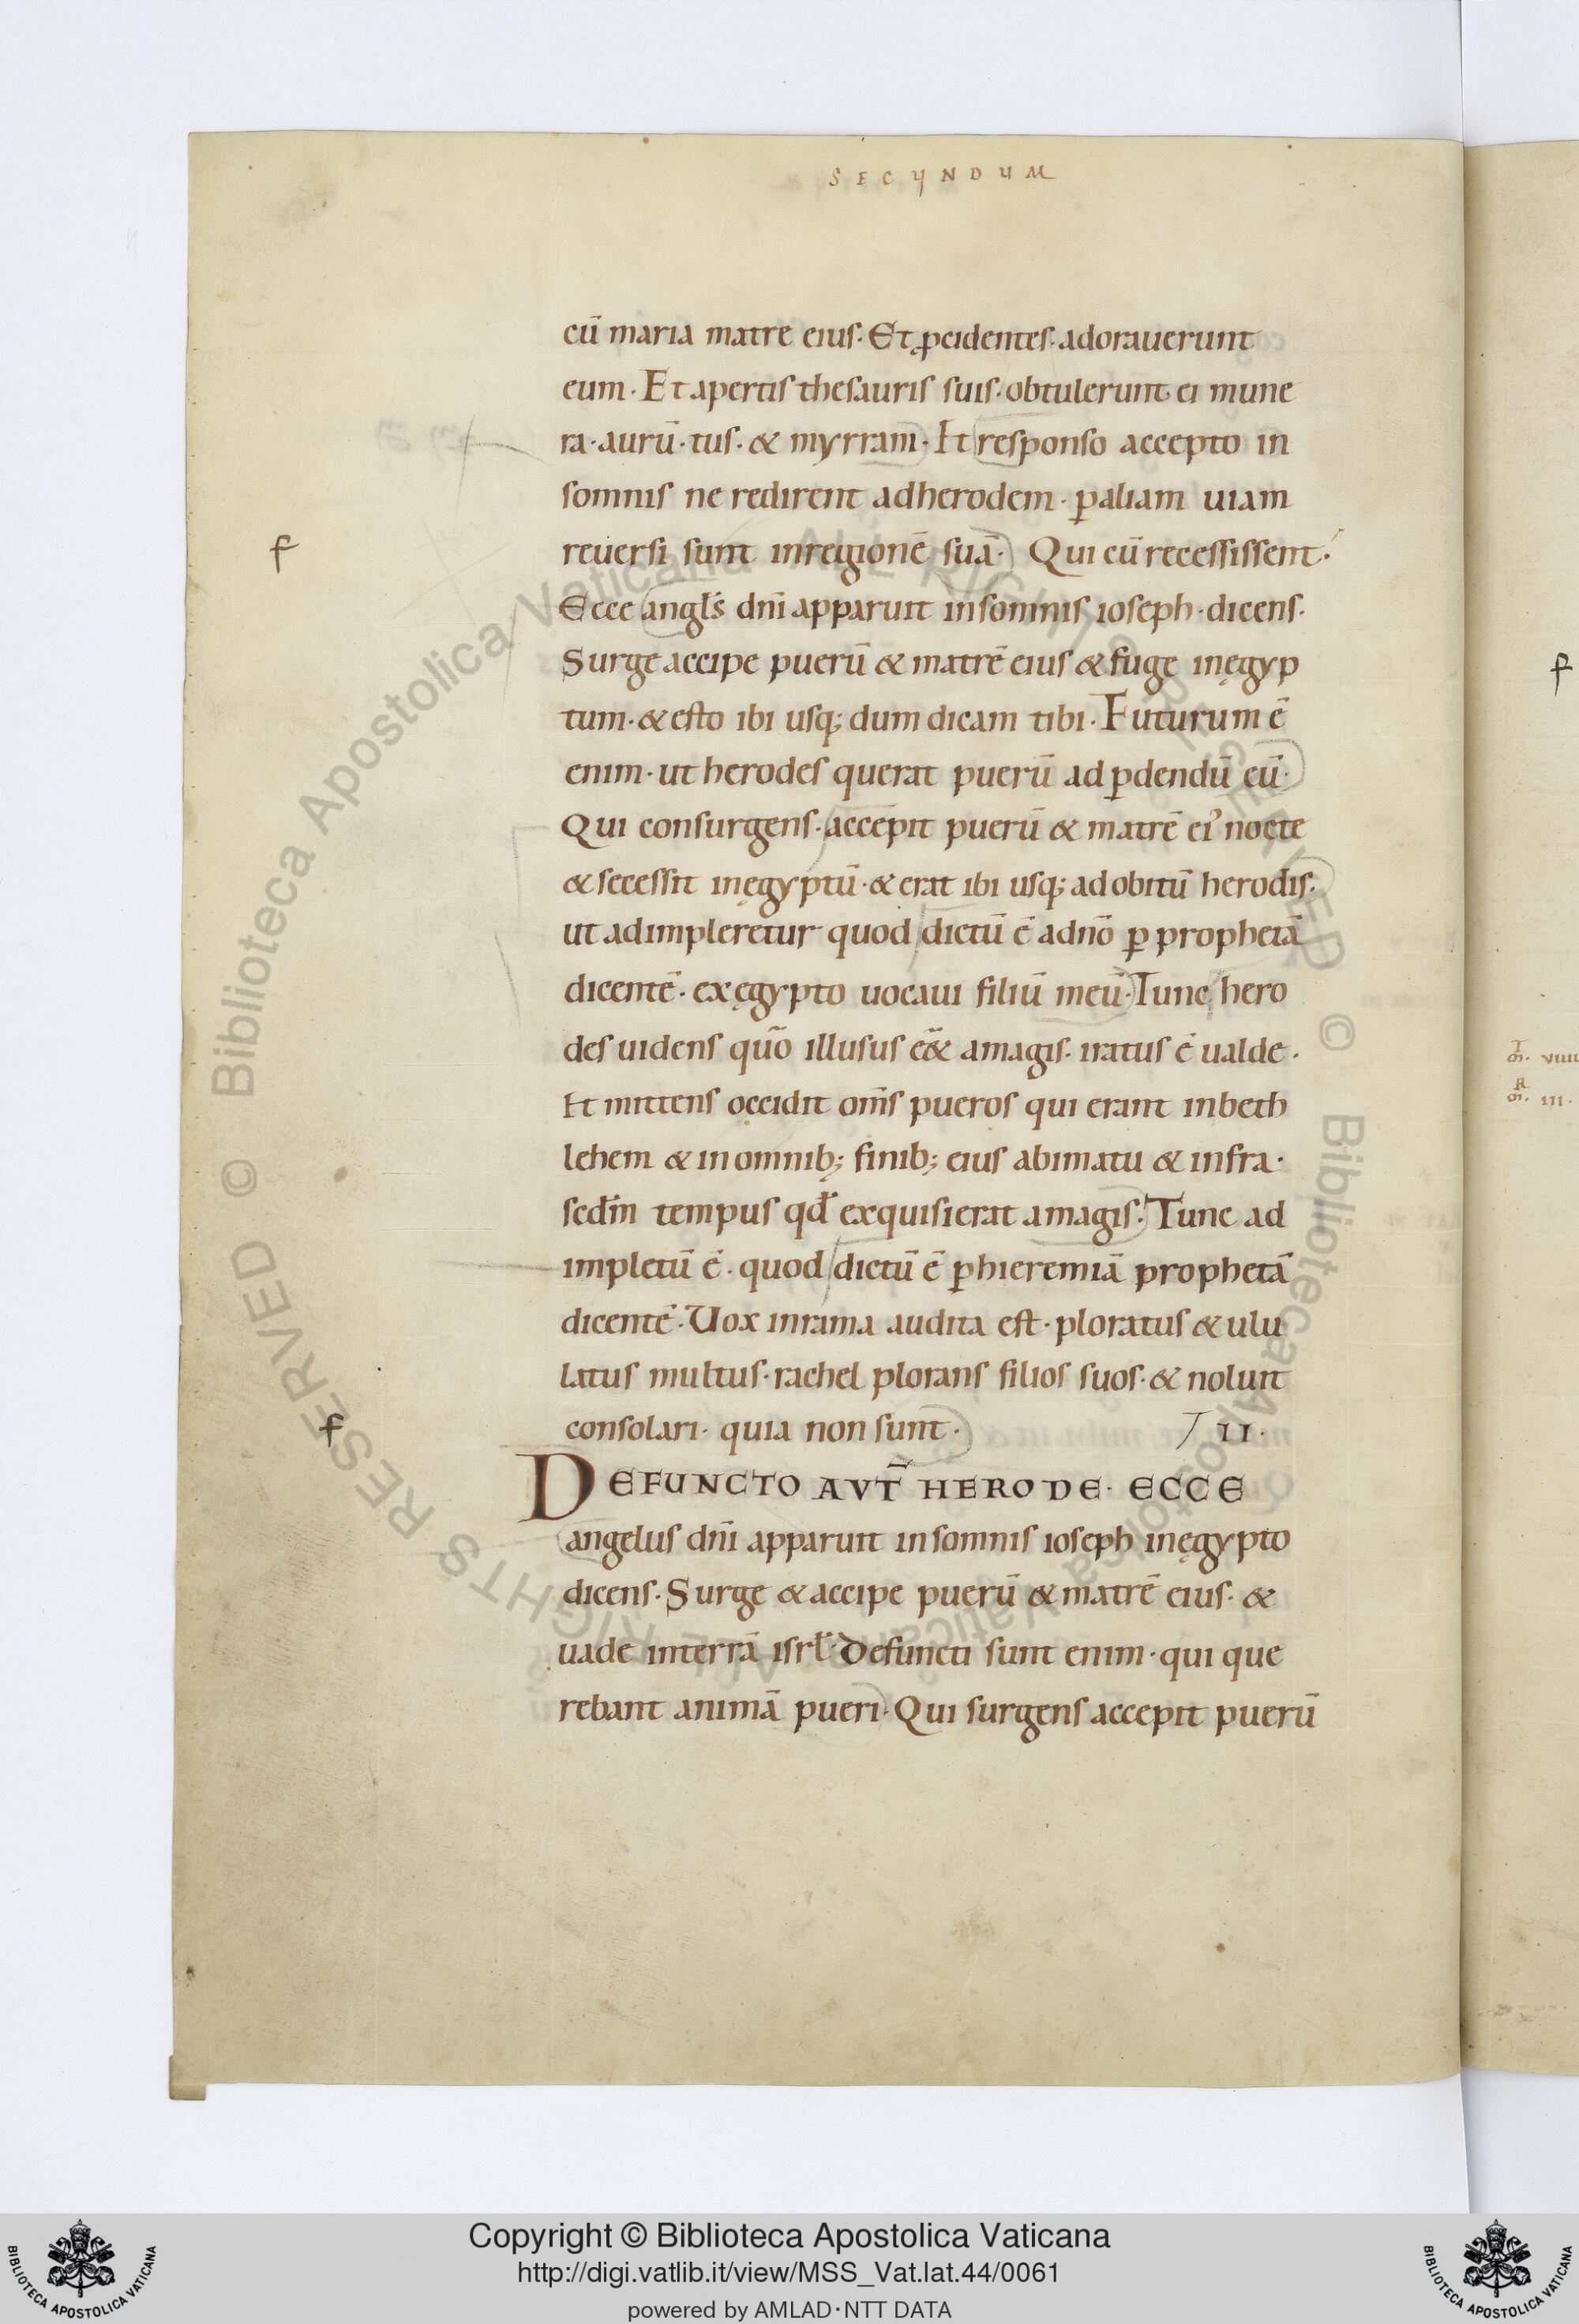 SECUNDUM
cū maria matre eius. Et ꝓcidentes. adorauerunt
eum. Et apertis thesauris suis. obtulerunt ei mune
ra. aurū. tus. & myrram. Et responso accepto in
somnis ne redirent adherodem. ꝑaliam uiam
reuersi sunt inregionē suā. Qui cū recessissent.
Ecce angłs dn̄i apparuit insomnis ioseph. dicens.
Surge accipe puerū & matrē eius & fuge inęgyp
tum. & esto ibi usq; dum dicam tibi. Futurum ē
enim. ut herodes querat puerū ad ꝑdendū eū.
Qui consurgens. accepit puerū & matrē ei᾿ nocte
& secessit inęgyptū. & erat ibi usq; ad obitū herodis.
ut adimpleretur quod dictū ē adn̄o ꝑ prophetā
dicentē. exęgypto uocaui filiū meū. Tunc hero
des uidens quō illusus eēt amagis. iratus ē ualde.
Et mittens occidit om̄s pueros qui erant inbeth
lehem & inomnib; finib; eius abimatu & infra.
sedm̄ tempus qđ exquisierat amagis. Tunc ad
impletū ē. quod dictū ē ꝑhieremiā prophetā
dicentē. Uox inrama audita est. ploratus & ulu
latus multus. rachel plorans filios suos. & noluit
consolari. quia non sunt. T II.
DEFUNCTO AVT̄ HERODE. ECCE
angelus dn̄i apparuit insomnis ioseph inęgypto
dicens. Surge & accipe puerū & matrē eius. &
uade interrā isrł. Defuncti sunt enim. qui que
rebant animā pueri. Qui surgens accepit puerū
f
f
f
T
m. VIIII
R
m. III.
© Biblioteca Apostolica Vaticana ALL RIGHTS RESERVED
© Biblioteca Apostolica Vaticana ALL RIGHTS RESERVED
Copyright © Biblioteca Apostolica Vaticana
http://digi.vatlib.it/view/MSS_Vat.lat.44/0061
powered by AMLAD·NTT DATA
BIBLIOTECA APOSTOLICA VATICANA
BIBLIOTECA APOSTOLICA VATICANA